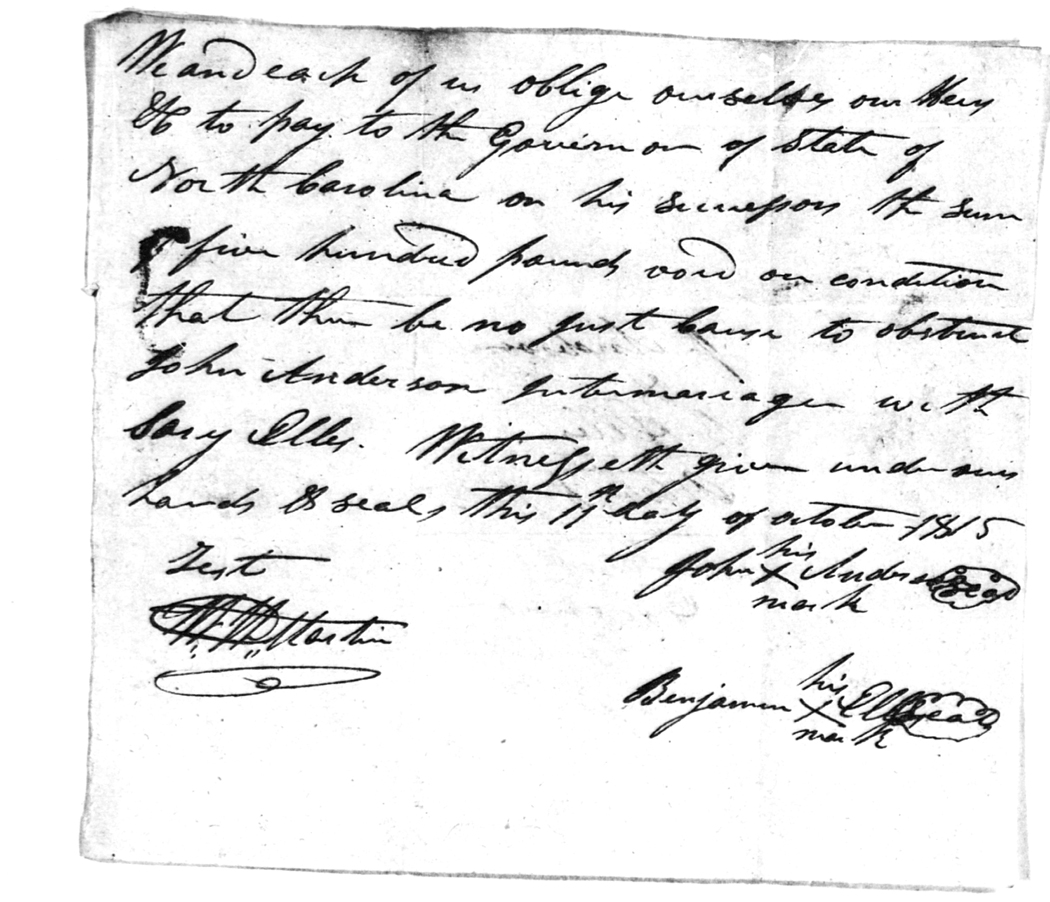 We and each of us oblige ourselves our Heirs
&c to pay to the Governor of State of
North Carolina or his successors the sum
of five hundred pounds void on condition
that there be no just Cause to obstruct
John Anderson Intermarriage with
Sary Elles. Witnesseth given under our
hands & seals this 11th day of october 1815
Test
John his X mark Anderson seal
W. W. Martin
Benjamin his X mark Elles seal